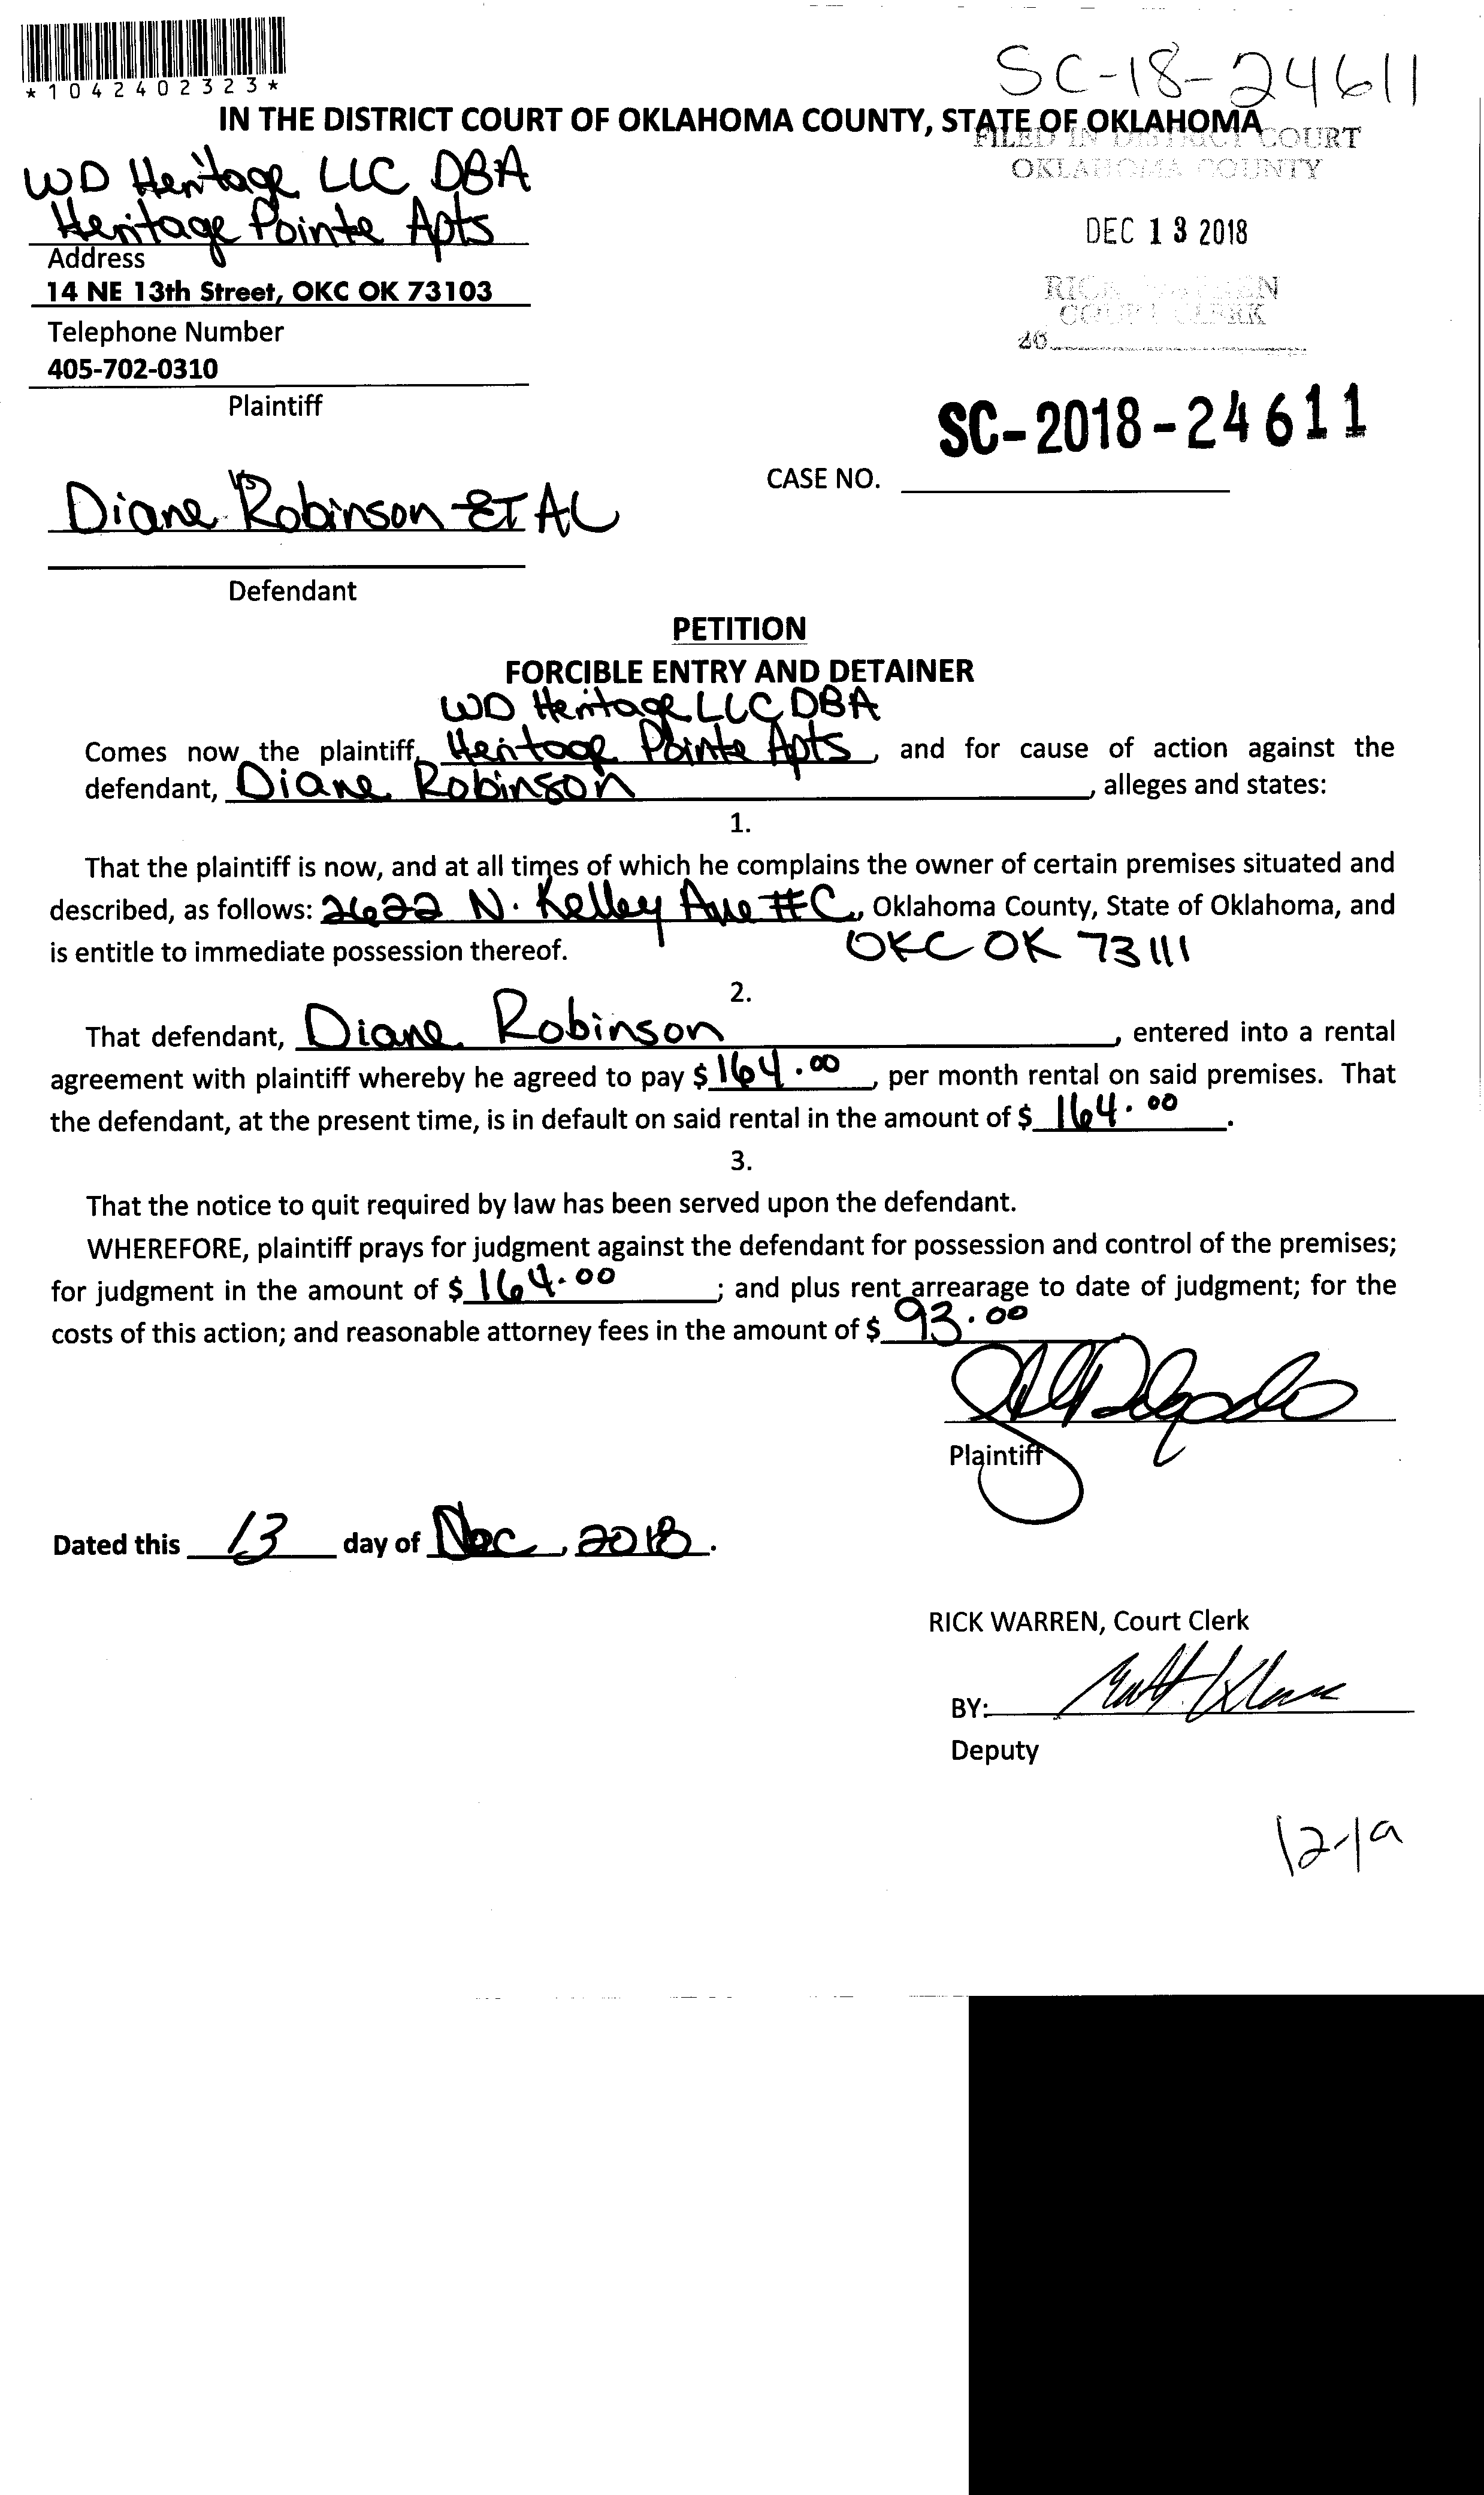 *1042402323*
SC-18-24611
IN THE DISTRICT COURT OF OKLAHOMA COUNTY, STATE OF OKLAHOMA
FILED IN DISTRICT COURT
OKLAHOMA COUNTY
WD Heritage LLC DBA
Heritage Pointe Apts
DEC 13 2018
Address
14 NE 13th Street, OKC OK 73103
RICK WARREN
COURT CLERK
Telephone Number
405-702-0310
Plaintiff
SC-2018-24611
CASE NO.
vs
Diane Robinson ET AL
Defendant
PETITION
FORCIBLE ENTRY AND DETAINER
WD Heritage LLC DBA
Comes now the plaintiff, Heritage Pointe Apts, and for cause of action against the
defendant, Diane Robinson, alleges and states:
1.
That the plaintiff is now, and at all times of which he complains the owner of certain premises situated and
described, as follows: 2622 N. Kelley Ave #C, Oklahoma County, State of Oklahoma, and
is entitle to immediate possession thereof. OKC OK 73111
2.
That defendant, Diane Robinson, entered into a rental
agreement with plaintiff whereby he agreed to pay $ 164.00, per month rental on said premises. That
the defendant, at the present time, is in default on said rental in the amount of $ 164.00.
3.
That the notice to quit required by law has been served upon the defendant.
WHEREFORE, plaintiff prays for judgment against the defendant for possession and control of the premises;
for judgment in the amount of $ 164.00; and plus rent arrearage to date of judgment; for the
costs of this action; and reasonable attorney fees in the amount of $ 93.00
Plaintiff
Dated this 13 day of Dec, 2018.
RICK WARREN, Court Clerk
BY:
Deputy